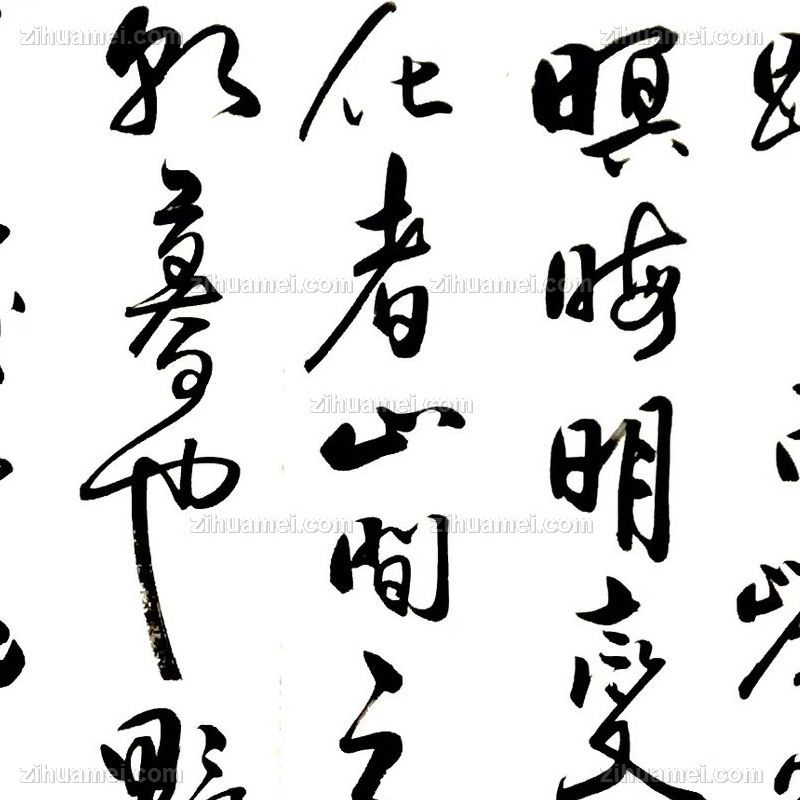 暝晦明變
化者山間之
朝暮也野
zihuamei.com
zihuamei.com
zihuamei.com
zihuamei.com
zihuamei.com
zihuamei.com
zihuamei.com
zihuamei.com
zihuamei.com